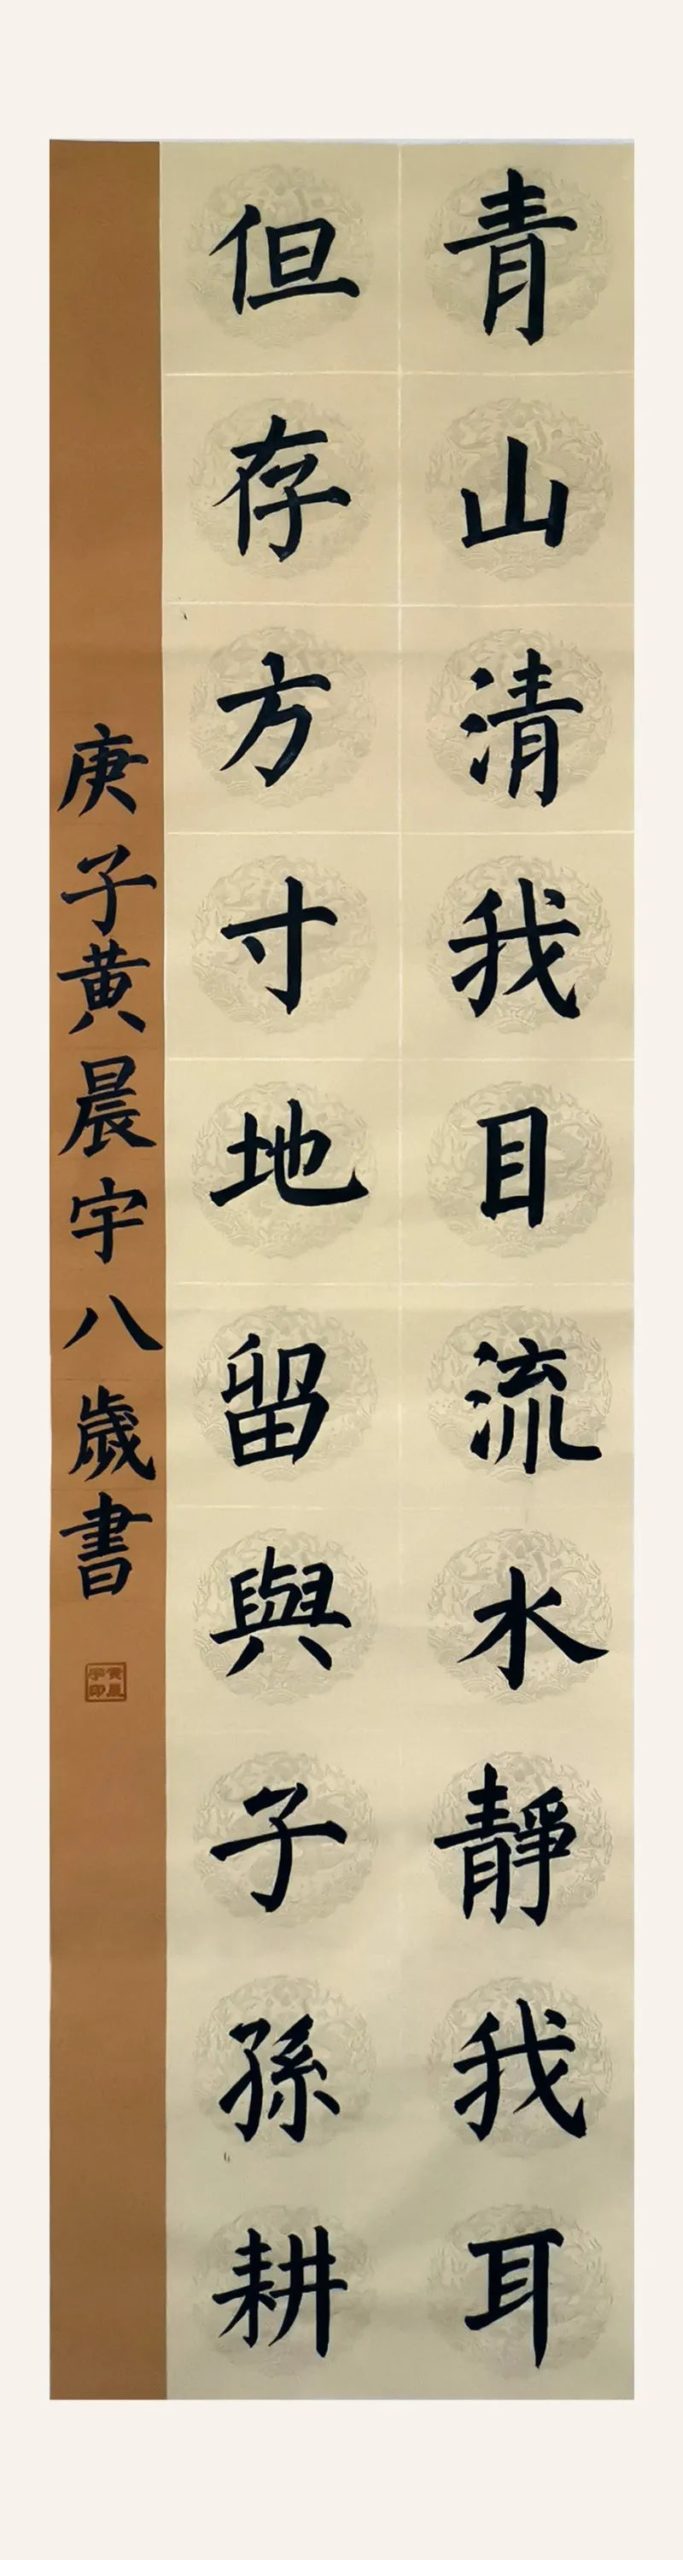 青山清我目流水靜我耳
但存方寸地留與子孫耕
庚子黄晨宇八歲書
黄晨宇印